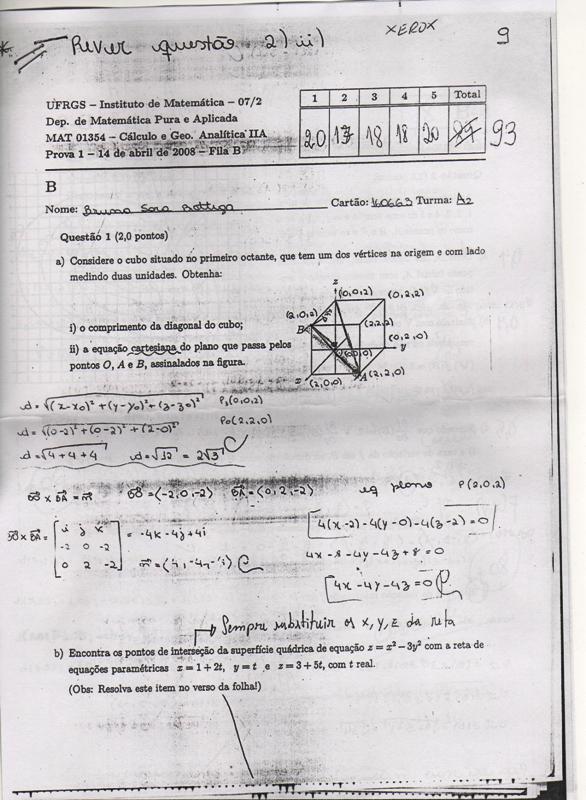 Rever questão 2) ii)
XEROX
9
UFRGS – Instituto de Matemática – 07/2
Dep. de Matemática Pura e Aplicada
MAT 01354 – Cálculo e Geo. Analítica IIA
Prova 1 – 14 de abril de 2008 – Fila B
1 2 3 4 5 Total
20 17 18 18 20 93
B
Nome: Bruna Cartão: Turma: A2
Questão 1 (2,0 pontos)
a) Considere o cubo situado no primeiro octante, que tem um dos vértices na origem e com lado
medindo duas unidades. Obtenha:
i) o comprimento da diagonal do cubo;
ii) a equação cartesiana do plano que passa pelos
pontos O, A e B, assinalados na figura.
z
(0,0,2) (0,2,2)
(2,0,2)
B (2,2,2)
(0,2,0)
(0,0,0) y
x (2,0,0) A (2,2,0)
d=√(x-x0)²+(y-y0)²+(z-z0)² P1(0,0,2)
d=√(0-2)²+(0-2)²+(2-0)² P0(2,2,0)
d=√4+4+4 d=√12 = 2√3
eq plano P(2,0,2)
i j k
-2 0 -2
0 2 -2
4(x-2)-4(y-0)-4(z-2)=0
4x-8-4y-4z+8=0
4x-4y-4z=0
Sempre substituir os x, y, z da reta
b) Encontra os pontos de interseção da superfície quádrica de equação z = x² – 3y² com a reta de
equações paramétricas x = 1 + 2t, y = t e z = 3 + 5t, com t real.
(Obs: Resolva este item no verso da folha!)